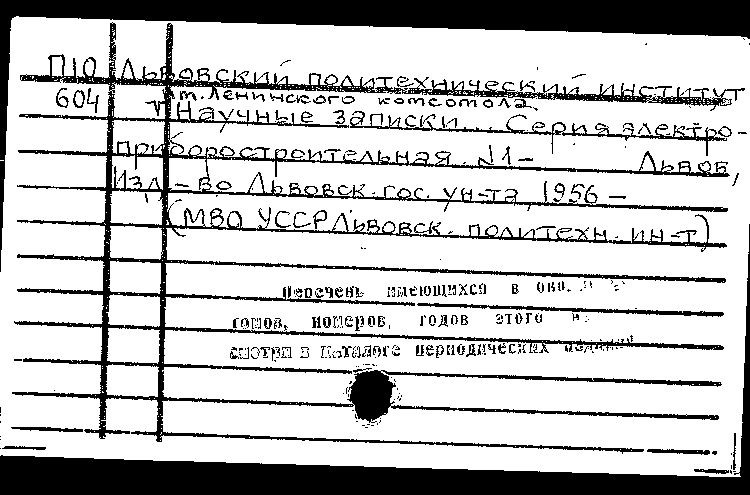 П10 Львовский политехнический институт
604 им. Ленинского комсомола.
Научные записки... Серия электро-
приборостроительная. №1- Львов,
Изд-во Львовск. гос. ун-та, 1956 -
(МВО УССР Львовск. политехн. ин-т)
Перечень имеющихся в
томов, номеров, годов этого
смотри в каталоге периодических изданий